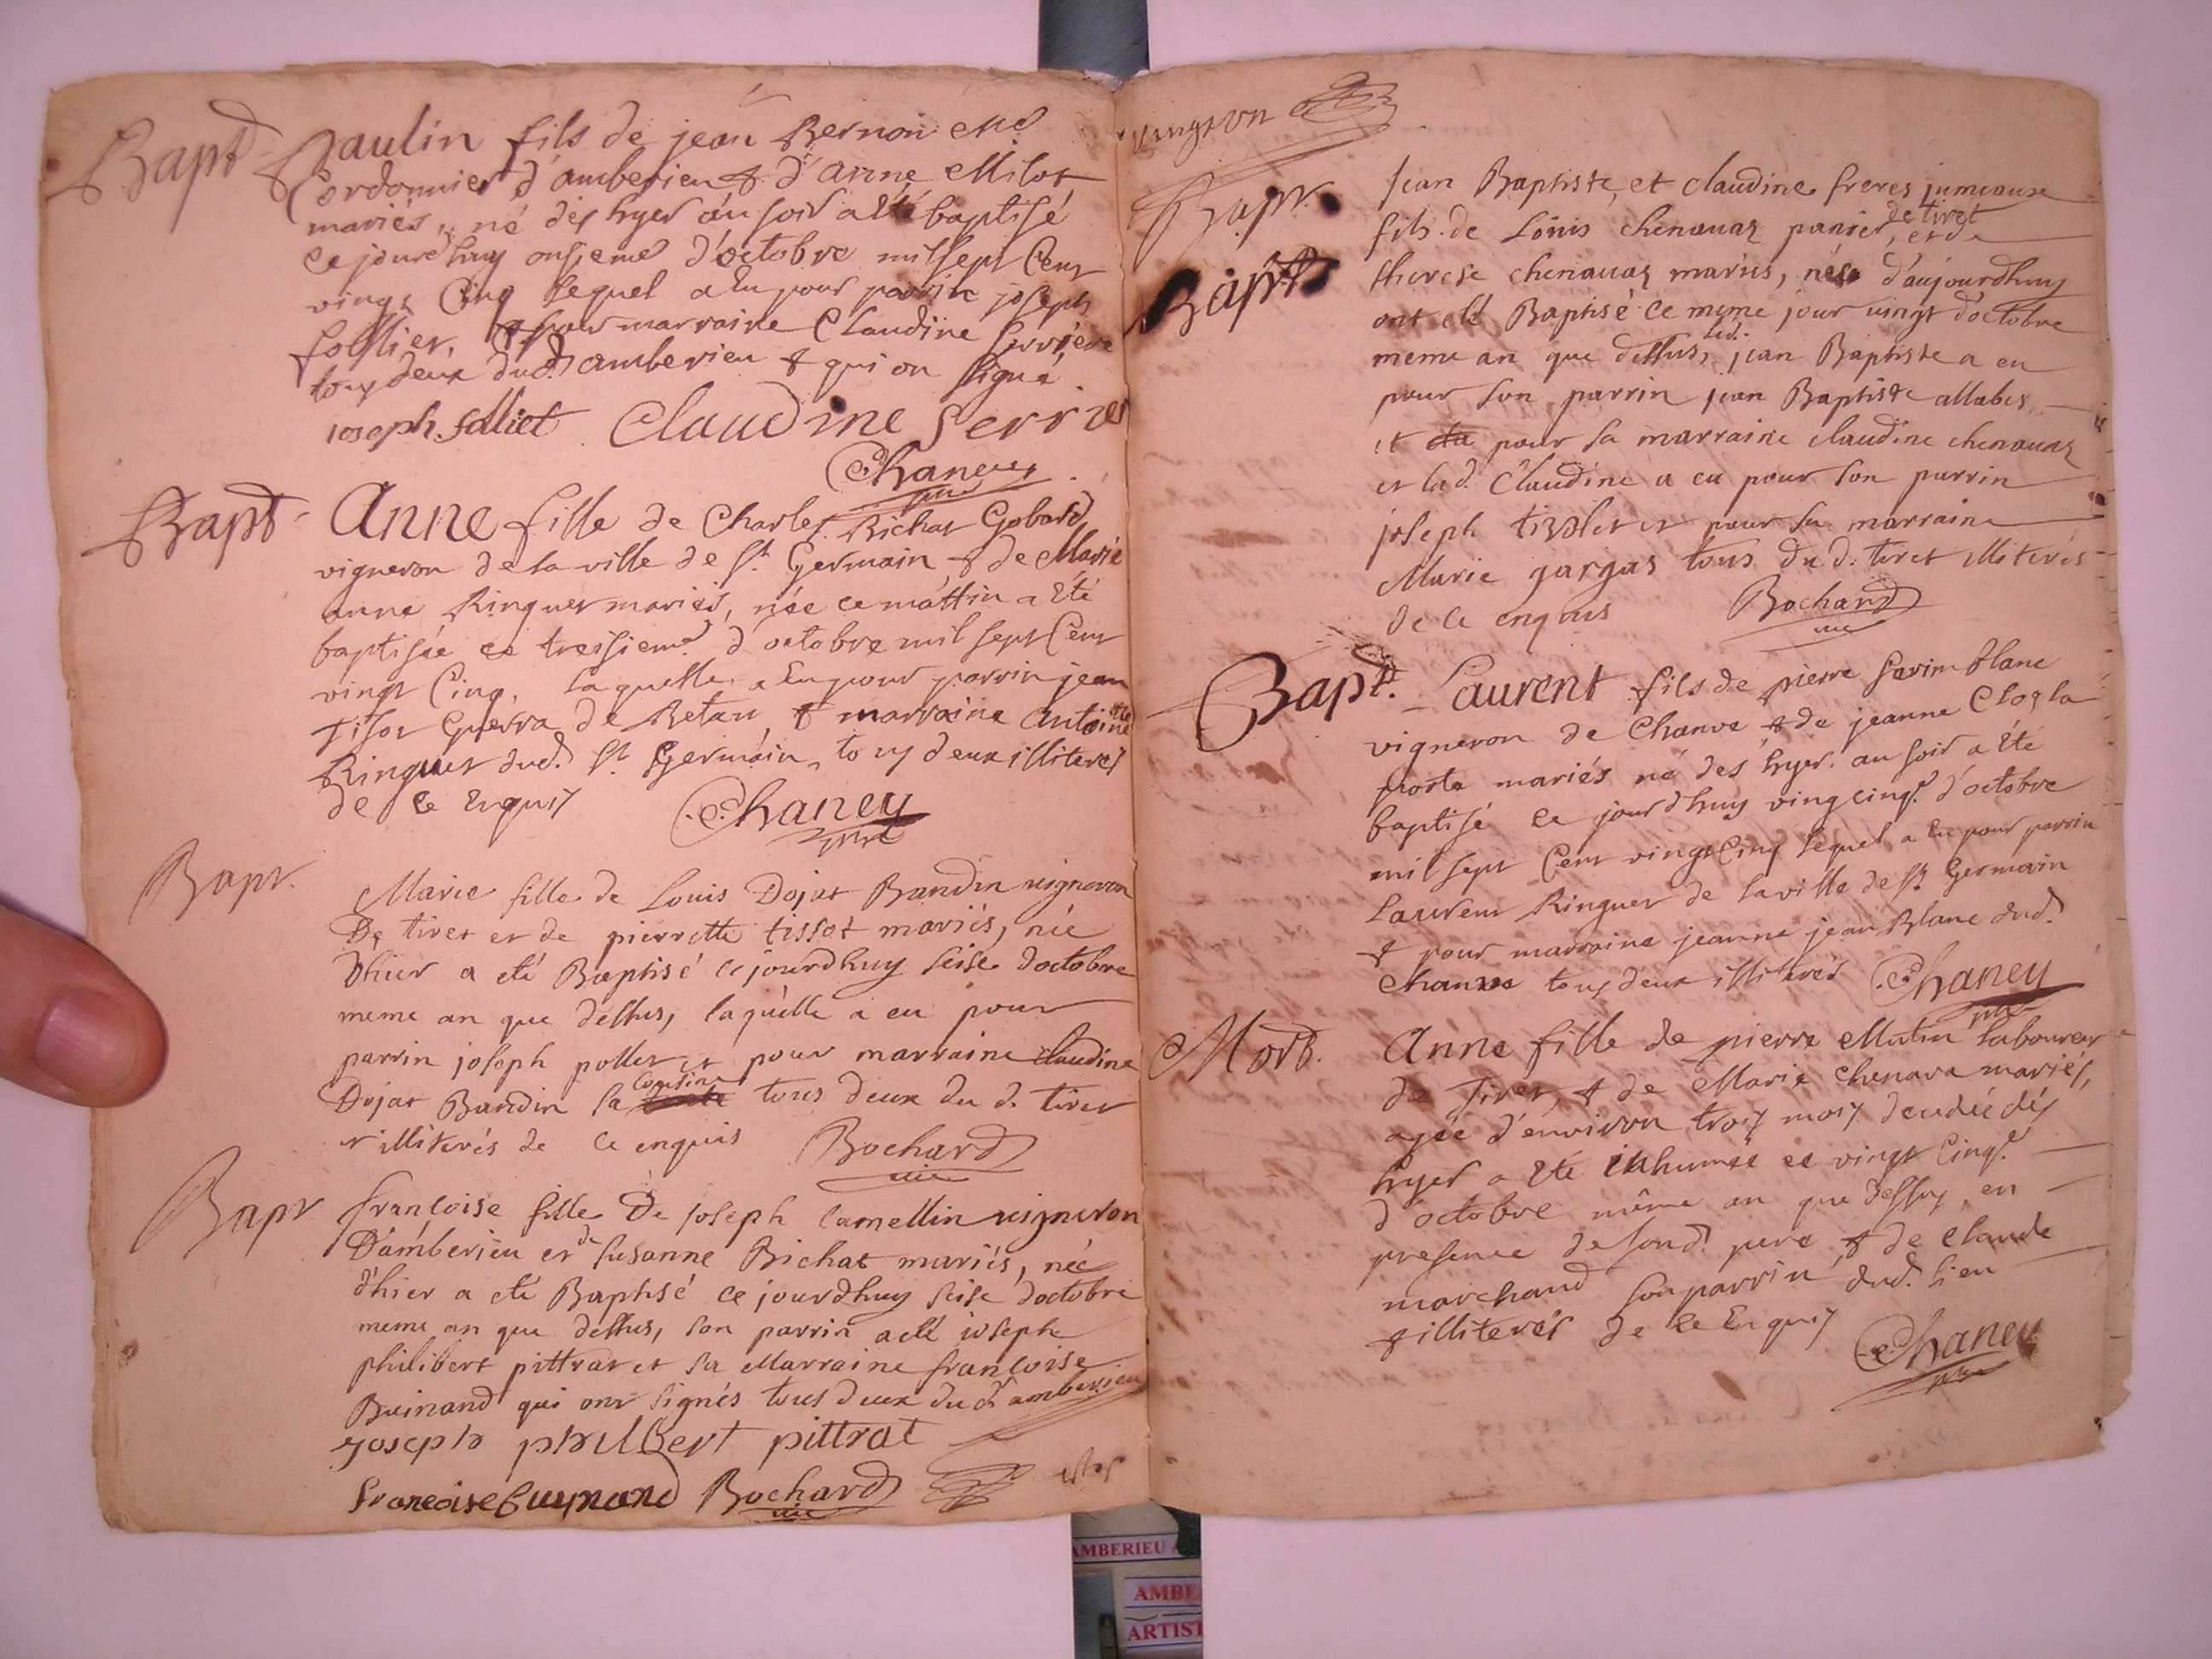 Bapt Paulin fils de jean Bernoin Me
Cordonnier d'amberieu & d'anne Milot
mariés, né des hyer au soir a été baptisé
ce jourd'huy onsieme d'octobre mil sept Cent
vingt Cinq lequel a Eu pour parrin joseph
follier, & pour marraine Claudine Serriere
tous deux dud. amberieu & qui on signé.
ioseph folliet Claudine Serrier
Chaney
Bapt Anne fille de Charles Bichat Gobard
vigneron de la ville de St. Germain & de Marie
anne Ringuet mariés, née ce mattin a Eté
baptisée ce tressieme d'octobre mil sept Cent
vingt Cinq, laquelle a Eu pour parrin jean
tisot Guerra de Betan & marraine Antoinette
Ringuet dud. St Germain, tous deux illiterés
de ce Enquis Chaney
Bapt. Marie fille de Louis Dojat Bandin uigneron
De tiret et de pierrette tissot mariés, née
d'hier a eté Baptisé ce jourdhuy seise doctobre
meme an que dessus, laquelle a eu pour
parrin joseph pollet et pour marraine claudine
Dojat Bandin sa Cousine tous deux du d. tiret
et illiterés de ce enquis Bochard
Bapt francoise fille De joseph Camellin uigneron
D'amberieu et de susanne Bichat mariés, née
d'hier a eté Baptisé ce jourdhuy seise doctobre
meme an que dessus, son parrin a eté ioseph
philibert pittrat et sa Marraine françoise
Buinand qui ont signés tous deux dud. amberieu
joseph philbert pittrat
francoise buynand Bochard
vingt un
Bapt. Jean Baptiste, et claudine freres jumeaux
Bapt fils de Louis chenauaz panier, de tiret et de
therese chenauaz mariés, nés d'aujourdhuy
ont eté Baptisé ce meme jour uingt d'octobre
meme an que dessus, led. jean Baptiste a eu
pour son parrin jean Baptiste allabes
et pour sa marraine claudine chenauaz
et lad. Claudine a eu pour son parrin
joseph tisolet et pour sa marraine
Marie gargas tous du d. tiret illiterés
de ce enquis Bochard
Bapt. Laurent fils de pierre Savin blanc
vigneron de Chanve & de jeanne Clos la
porte mariés né des hyer au soir a Eté
baptisé ce jourd'huy vingt cinq.e d'octobre
mil sept Cent vingt Cinq lequel a Eu pour parrin
Laurent Ringuet de la ville de St Germain
& pour marraine jeanne jean Blanc dud.
Chanve tous deux illiterés Chaney
Mort. Anne fille de pierre Mutin laboureur
de Tiret, & de Marie chenava mariés,
agée d'environ trois mois decedée dés
hyer a Eté inhumée ce vingt Cinq.e
d'octobre même an que dessus, en
presence de sond. pere & de Claude
marchand son parrin, dud. lieu
& illiterés de ce Enquis Chaney
AMBERIEU
AMBE
ARTIST